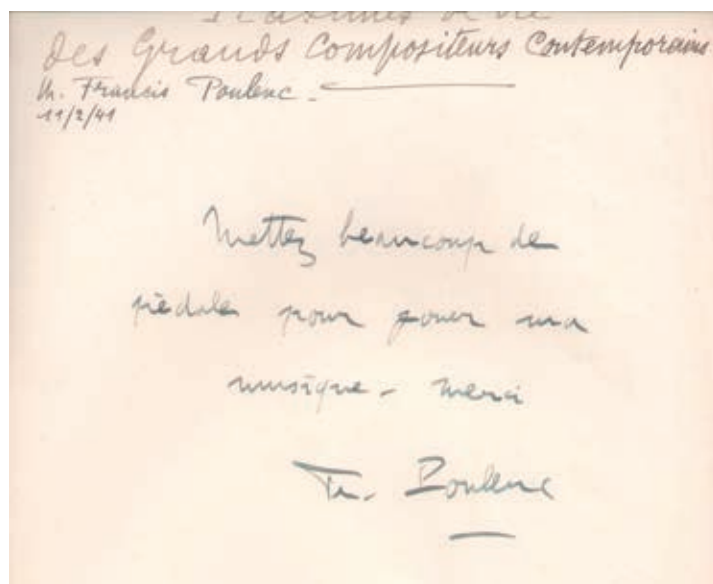 des Grands Compositeurs Contemporains
M. Francis Poulenc
11/2/41
Mettez beaucoup de
pédales pour jouer ma
musique - merci
Fr. Poulenc